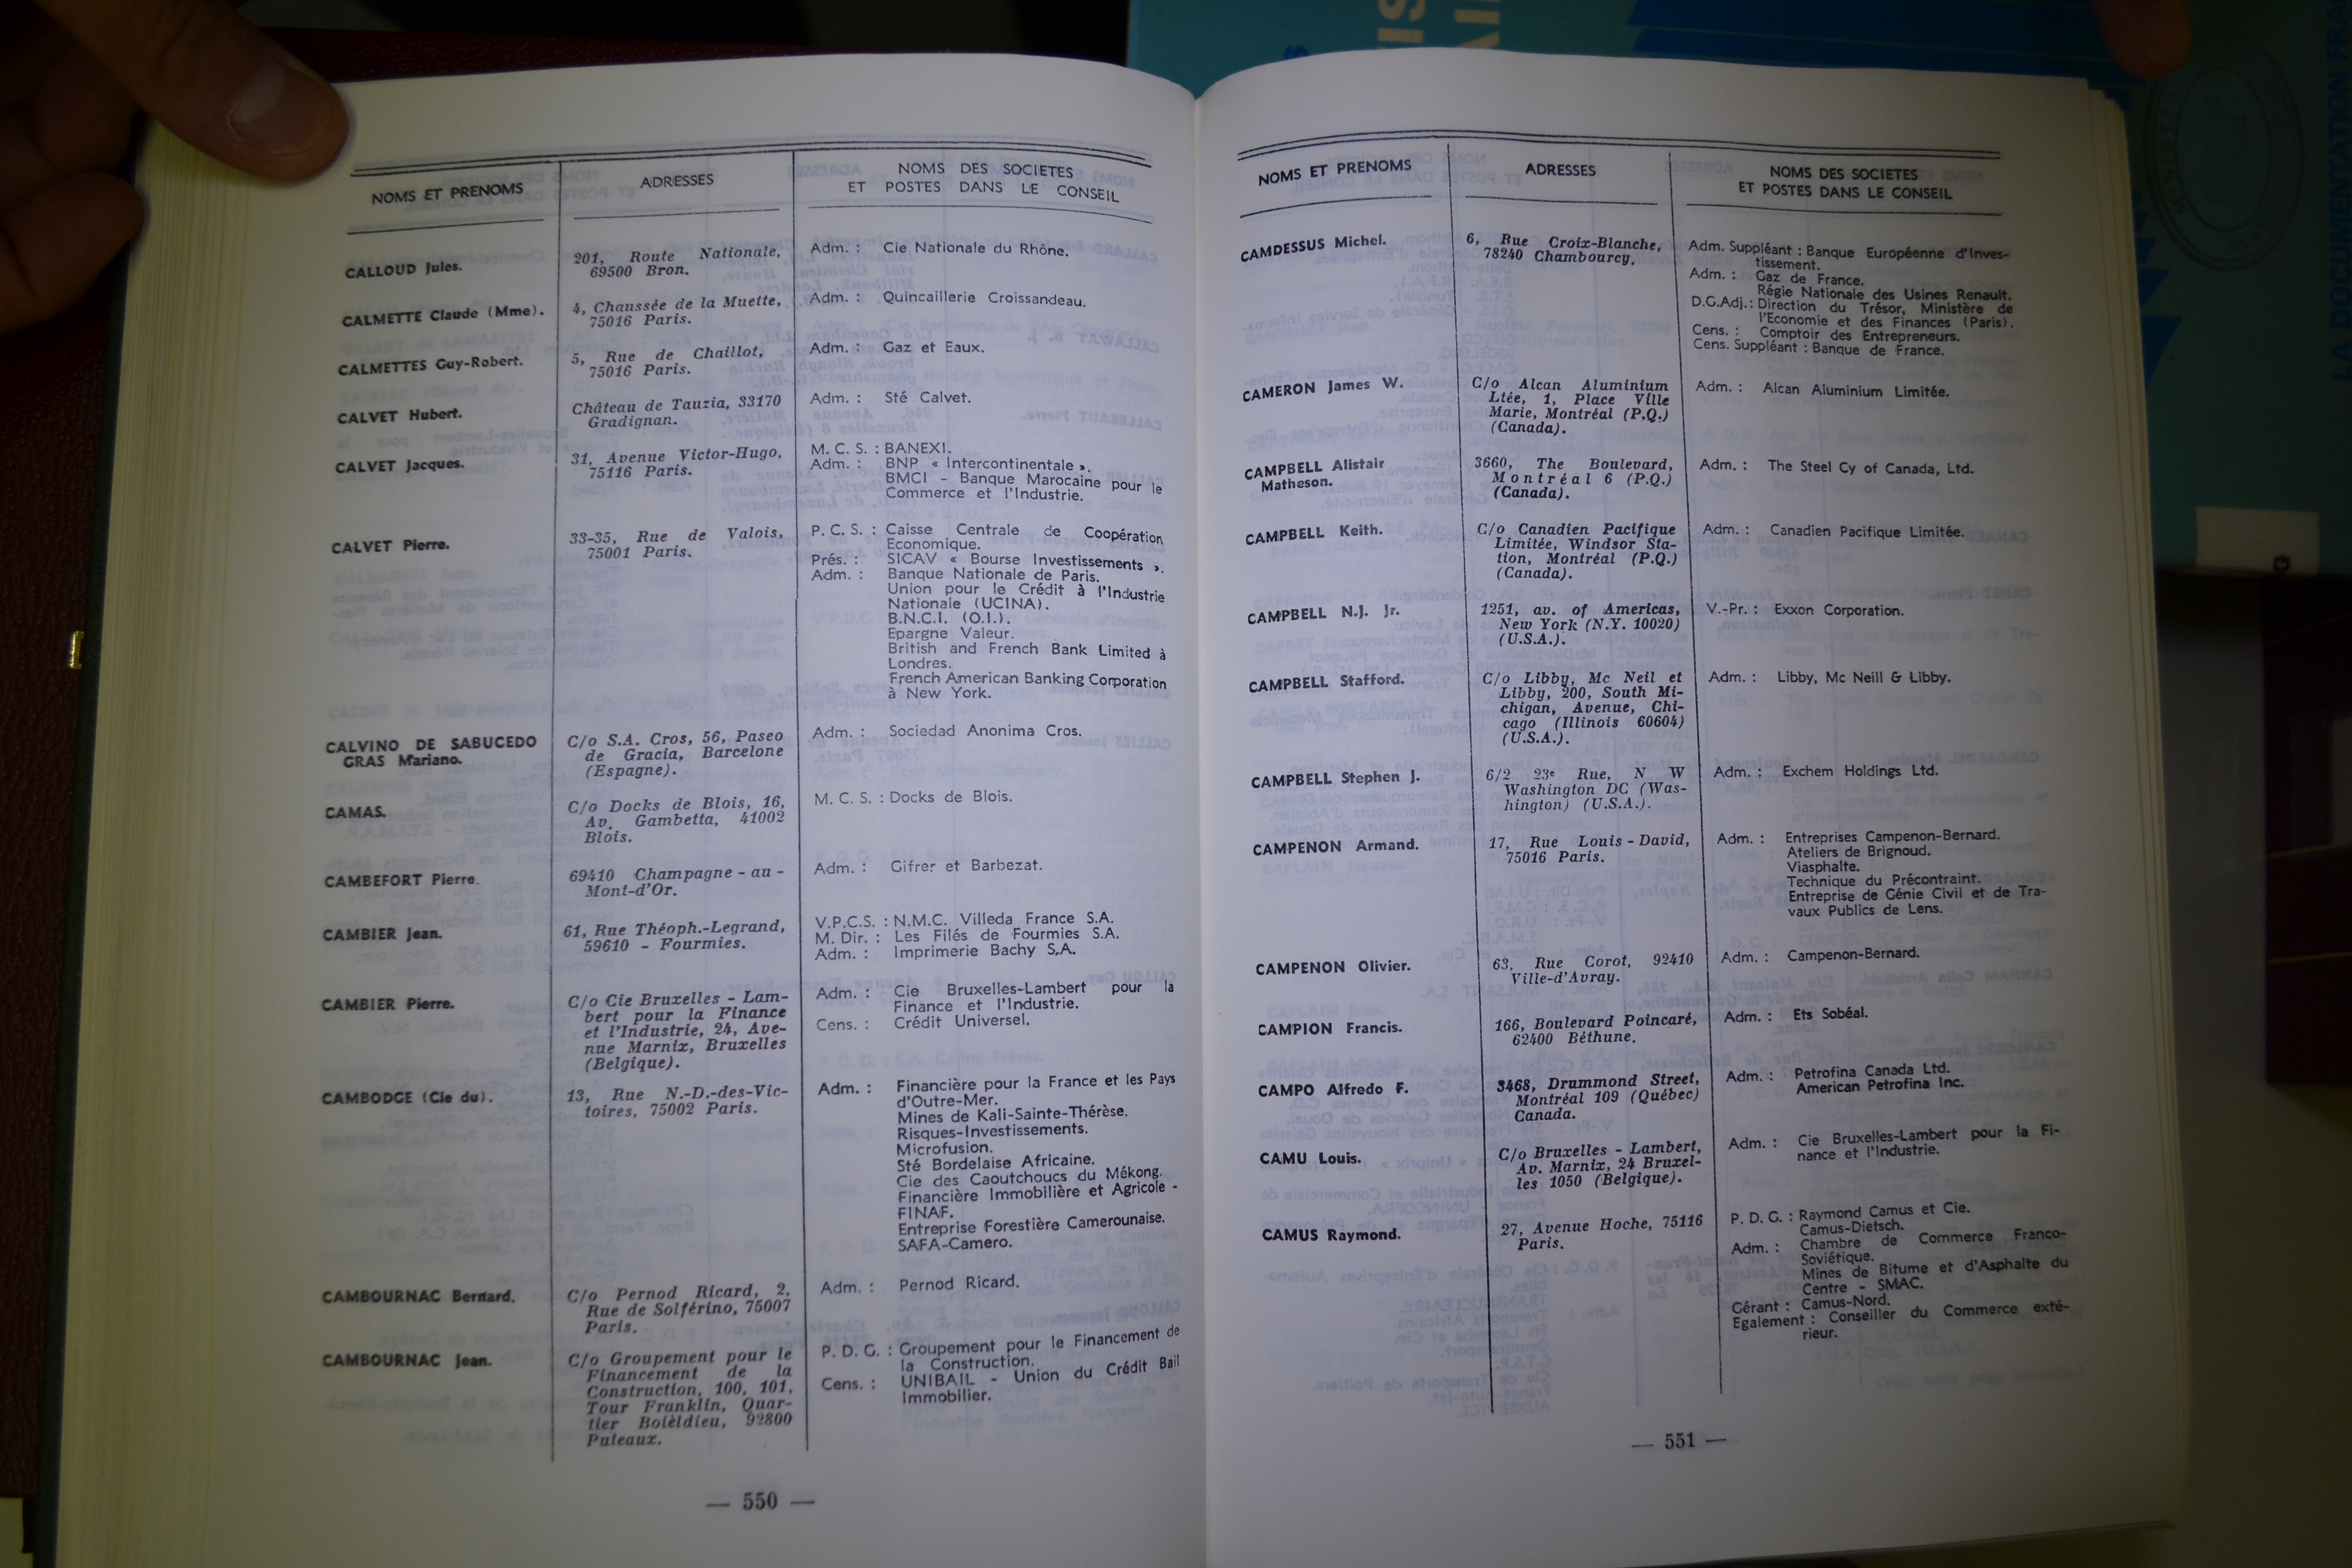 NOMS ET PRENOMS
ADRESSES
NOMS DES SOCIETES
ET POSTES DANS LE CONSEIL
CALLOUD Jules.
201, Route Nationale,
69500 Bron.
Adm. : Cie Nationale du Rhône.
CALMETTE Claude (Mme).
4, Chaussée de la Muette,
75016 Paris.
Adm. : Quincaillerie Croissandeau.
CALMETTES Guy-Robert.
5, Rue de Chaillot,
75016 Paris.
Adm. : Gaz et Eaux.
CALVET Hubert.
Château de Tauzia, 33170
Gradignan.
Adm. : Sté Calvet.
CALVET Jacques.
31, Avenue Victor-Hugo,
75116 Paris.
M. C. S. : BANEXI.
Adm. : BNP « Intercontinentale ».
BMCI - Banque Marocaine pour le
Commerce et l'Industrie.
CALVET Pierre.
33-35, Rue de Valois,
75001 Paris.
P. C. S. : Caisse Centrale de Coopération
Economique.
Prés. : SICAV « Bourse Investissements ».
Adm. : Banque Nationale de Paris.
Union pour le Crédit à l'Industrie
Nationale (UCINA).
B.N.C.I. (O.I.).
Epargne Valeur.
British and French Bank Limited à
Londres.
French American Banking Corporation
à New York.
CALVINO DE SABUCEDO
GRAS Mariano.
C/o S.A. Cros, 56, Paseo
de Gracia, Barcelone
(Espagne).
Adm. : Sociedad Anonima Cros.
CAMAS.
C/o Docks de Blois, 16,
Av. Gambetta, 41002
Blois.
M. C. S. : Docks de Blois.
CAMBEFORT Pierre.
69410 Champagne - au -
Mont-d'Or.
Adm. : Gifrer et Barbezat.
CAMBIER Jean.
61, Rue Théoph.-Legrand,
59610 - Fourmies.
V.P.C.S. : N.M.C. Villeda France S.A.
M. Dir. : Les Filés de Fourmies S.A.
Adm. : Imprimerie Bachy S.A.
CAMBIER Pierre.
C/o Cie Bruxelles - Lam-
bert pour la Finance
et l'Industrie, 24, Ave-
nue Marnix, Bruxelles
(Belgique).
Adm. : Cie Bruxelles-Lambert pour la
Finance et l'Industrie.
Cens. : Crédit Universel.
CAMBODGE (Cie du).
13, Rue N.-D.-des-Vic-
toires, 75002 Paris.
Adm. : Financière pour la France et les Pays
d'Outre-Mer.
Mines de Kali-Sainte-Thérèse.
Risques-Investissements.
Microfusion.
Sté Bordelaise Africaine.
Cie des Caoutchoucs du Mékong.
Financière Immobilière et Agricole -
FINAF.
Entreprise Forestière Camerounaise.
SAFA-Camero.
CAMBOURNAC Bernard.
C/o Pernod Ricard, 2,
Rue de Solférino, 75007
Paris.
Adm. : Pernod Ricard.
CAMBOURNAC Jean.
C/o Groupement pour le
Financement de la
Construction, 100, 101,
Tour Franklin, Quar-
tier Boïeldieu, 92800
Puteaux.
P. D. G. : Groupement pour le Financement de
la Construction.
Cens. : UNIBAIL - Union du Crédit Bail
Immobilier.
— 550 —
NOMS ET PRENOMS
ADRESSES
NOMS DES SOCIETES
ET POSTES DANS LE CONSEIL
CAMDESSUS Michel.
6, Rue Croix-Blanche,
78240 Chambourcy.
Adm. Suppléant : Banque Européenne d'Inves-
tissement.
Adm. : Gaz de France.
Régie Nationale des Usines Renault.
D.G.Adj. : Direction du Trésor, Ministère de
l'Economie et des Finances (Paris).
Cens. : Comptoir des Entrepreneurs.
Cens. Suppléant : Banque de France.
CAMERON James W.
C/o Alcan Aluminium
Ltée, 1, Place Ville
Marie, Montréal (P.Q.)
(Canada).
Adm. : Alcan Aluminium Limitée.
CAMPBELL Alistair
Matheson.
3660, The Boulevard,
Montréal 6 (P.Q.)
(Canada).
Adm. : The Steel Cy of Canada, Ltd.
CAMPBELL Keith.
C/o Canadien Pacifique
Limitée, Windsor Sta-
tion, Montréal (P.Q.)
(Canada).
Adm. : Canadien Pacifique Limitée.
CAMPBELL N.J. Jr.
1251, av. of Americas,
New York (N.Y. 10020)
(U.S.A.).
V.-Pr. : Exxon Corporation.
CAMPBELL Stafford.
C/o Libby, Mc Neil et
Libby, 200, South Mi-
chigan, Avenue, Chi-
cago (Illinois 60604)
(U.S.A.).
Adm. : Libby, Mc Neill & Libby.
CAMPBELL Stephen J.
6/2 23e Rue, N W
Washington DC (Was-
hington) (U.S.A.).
Adm. : Exchem Holdings Ltd.
CAMPENON Armand.
17, Rue Louis - David,
75016 Paris.
Adm. : Entreprises Campenon-Bernard.
Ateliers de Brignoud.
Viasphalte.
Technique du Précontraint.
Entreprise de Génie Civil et de Tra-
vaux Publics de Lens.
CAMPENON Olivier.
63, Rue Corot, 92410
Ville-d'Avray.
Adm. : Campenon-Bernard.
CAMPION Francis.
166, Boulevard Poincaré,
62400 Béthune.
Adm. : Ets Sobéal.
CAMPO Alfredo F.
3468, Drummond Street,
Montréal 109 (Québec)
Canada.
Adm. : Petrofina Canada Ltd.
American Petrofina Inc.
CAMU Louis.
C/o Bruxelles - Lambert,
Av. Marnix, 24 Bruxel-
les 1050 (Belgique).
Adm. : Cie Bruxelles-Lambert pour la Fi-
nance et l'Industrie.
CAMUS Raymond.
27, Avenue Hoche, 75116
Paris.
P. D. G. : Raymond Camus et Cie.
Camus-Dietsch.
Adm. : Chambre de Commerce Franco-
Soviétique.
Mines de Bitume et d'Asphalte du
Centre - SMAC.
Gérant : Camus-Nord.
Egalement : Conseiller du Commerce exté-
rieur.
— 551 —
LA DOCUMENTATION FRAN